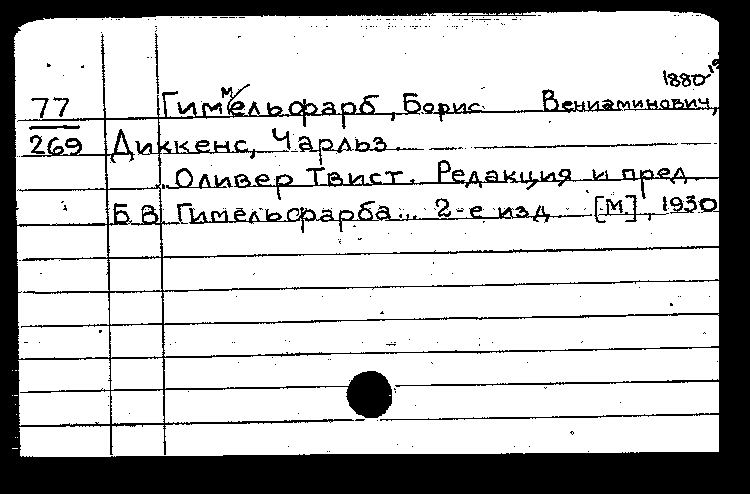 1880-19
77 Гиммельфарб, Борис Вениаминович,
269 Диккенс, Чарльз.
Оливер Твист. Редакция и пред.
Б.В. Гимельфарба... 2-е изд. [М.], 1930